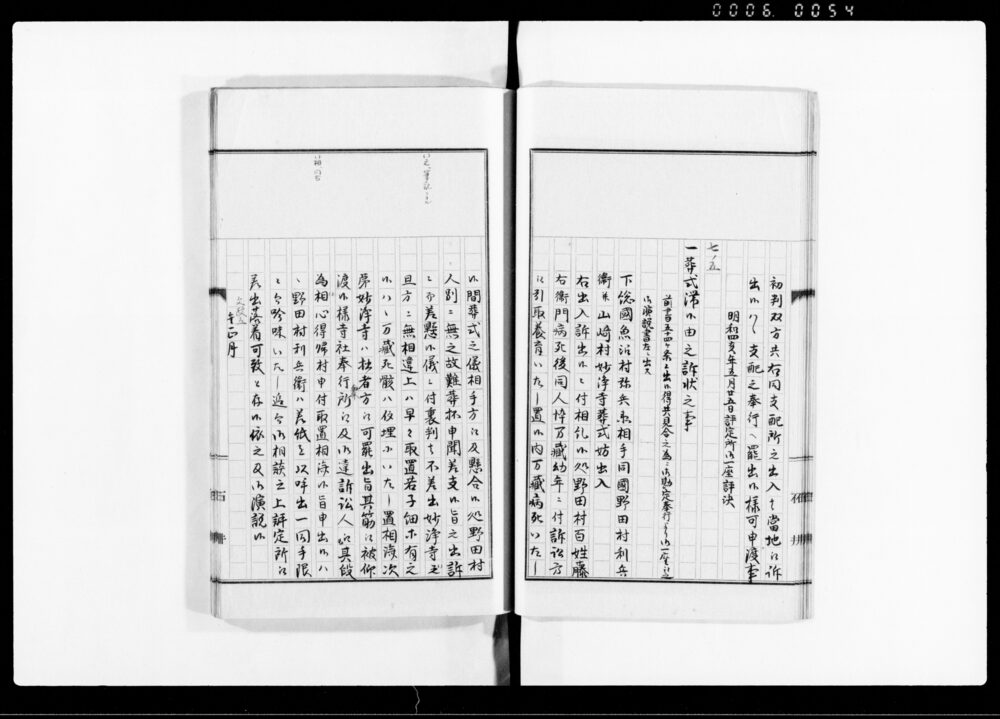 0006 0054
初判双方共右同支配所之出入ニ而當地江訴
出候ハヽ支配之奉行へ罷出候様可申渡事
明和四亥年五月廿五日評定所御一座評決
七ノ五
一葬式滞候由之訴状之事
下総國魚沼村弥兵衛相手同國野田村利兵
衛并山崎村妙浄寺葬式妨出入
右出入訴出候ニ付相糺候処野田村百姓藤
右衛門病死後同人悴万藏幼年ニ付訴訟方
江引取養育いたし置候内万藏病死いたし
候間葬式之儀相手方江及懸合候処野田村
人別ニ無之故難葬抔申聞差支候旨之出訴
ニ而差懸候儀ニ付裏判者不差出妙浄寺
旦方ニ無相違上ハ早々取置若子細等有之
候ハヽ万藏死骸ハ仮埋ニいたし置相済次
第妙浄寺江拙者方江可罷出旨其筋江被仰
渡候様寺社奉行所江及御達訴訟人江其段
為相心得帰村申付取置相済候旨申出候ハ
ヽ野田村利兵衛ハ差紙を以呼出一同手限
ニ而吟味いたし追而御相談之上評定所江
差出落着可致と存候依之及御演説候
寅正月